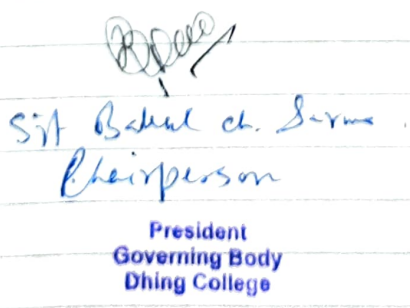 Sjt Bakul ch. Sarma.
Chairperson
President
Governing Body
Dhing College